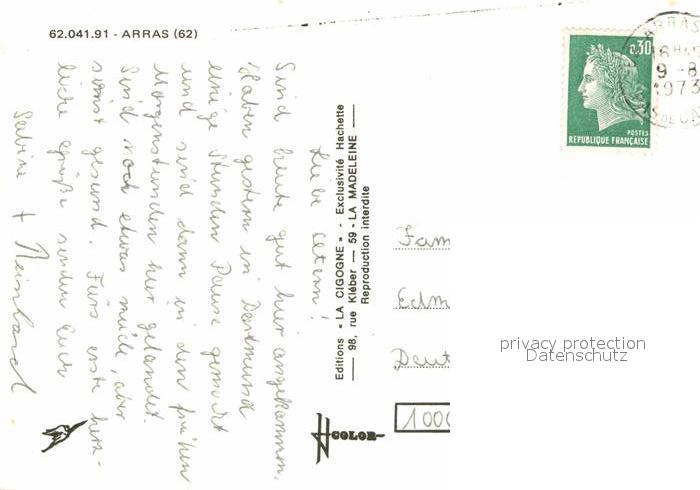 62.041.91 - ARRAS (62)
Liebe Eltern!
Sind heute gut hier angekommen.
Haben gestern in Dortmund
einige Stunden Pause gemacht
und sind dann in den frühen
Morgenstunden hier gelandet.
Sind noch etwas müde, aber
sonst gesund. Fürs erste herz-
liche Grüße senden Euch
Sabine + Reinhard
Editions « LA CIGOGNE » - Exclusivité Hachette
98, rue Kléber — 59 - LA MADELEINE
Reproduction interdite
COLOR
0,30
POSTES
REPUBLIQUE FRANÇAISE
ARRAS
9 -8
1973
Fam
Edm
Deut
1000
privacy protection
Datenschutz